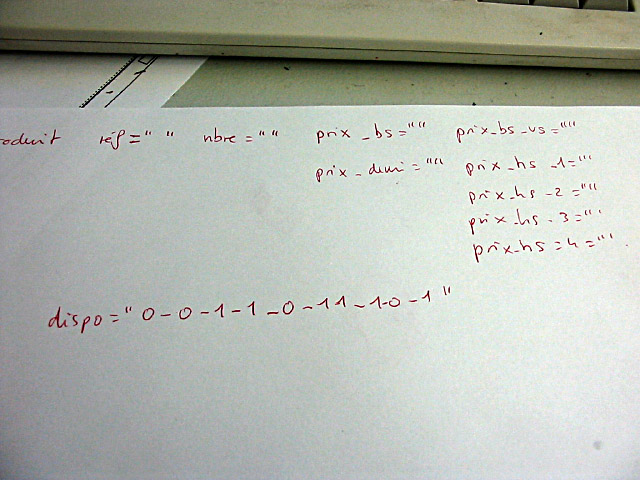 oduit réf = " " nbre = " " prix_bs = "" prix_bs_vs = ""
prix_demi = "" prix_hs_1 = ""
prix_hs_2 = ""
prix_hs_3 = ""
prix_hs=4 = ""
dispo = " 0-0-1-1-0-11-1-0-1 "